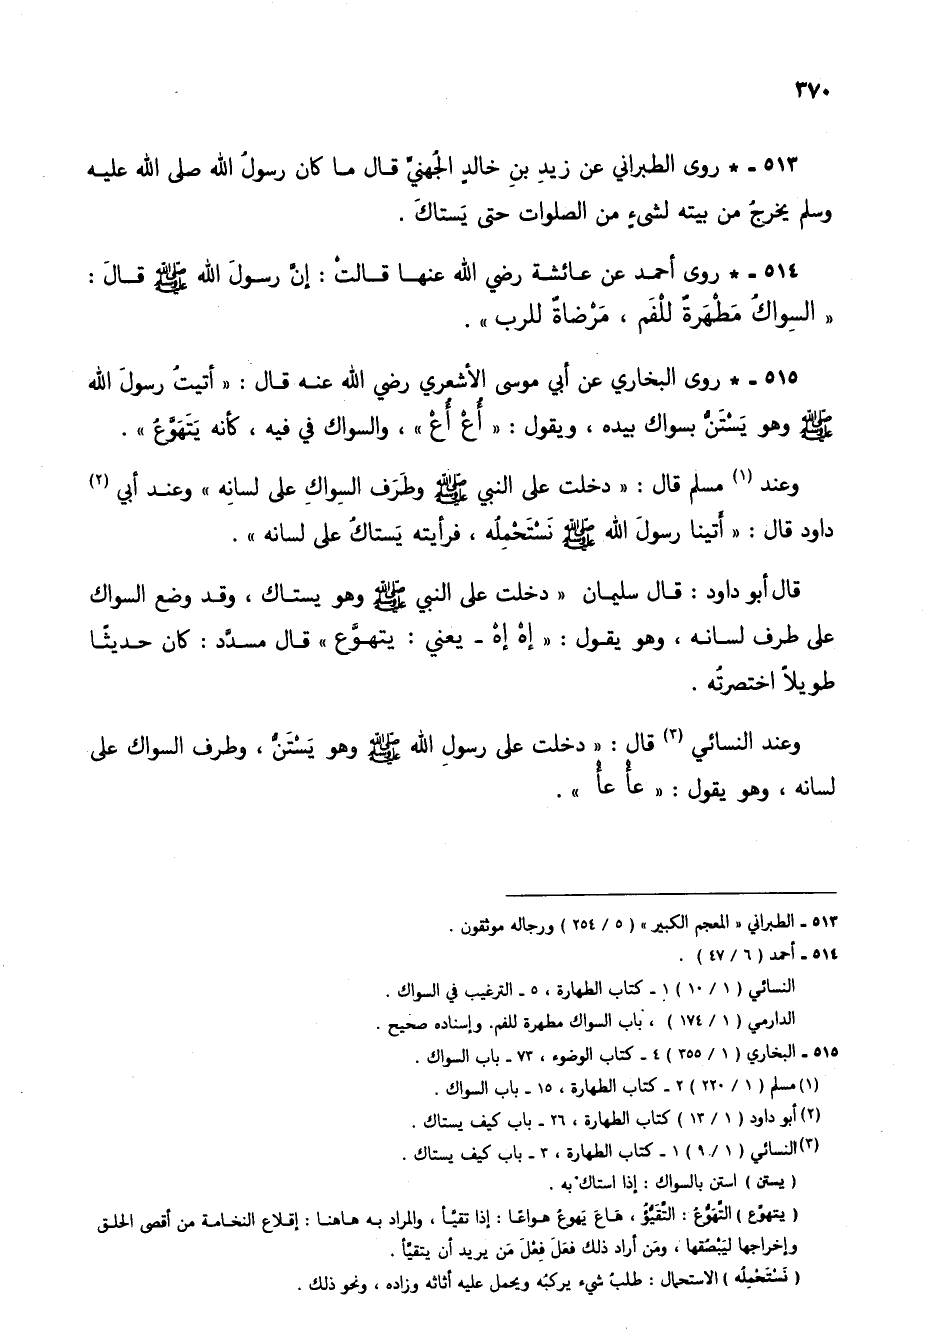 ٣٧٠
٥١٣ ـ * روى الطبراني عن زيدِ بنِ خالدٍ الجُهنيِّ قال ما كان رسولُ الله صلى الله عليه
وسلم يخرجُ من بيته لشىءٍ من الصلوات حتى يَستاكَ .
٥١٤ ـ * روى أحمد عن عائشة رضي الله عنها قالتْ : إنَّ رسولَ الله ﷺ قالَ :
« السواكُ مَطْهَرَةٌ للْفَم ، مَرْضاةٌ للرب » .
٥١٥ ـ * روى البخاري عن أبي موسى الأشعري رضي الله عنه قال : « أتيتُ رسولَ الله
ﷺ وهو يَسْتَنُّ بسواك بيده ، ويقول : « أُعْ أُعْ » ، والسواك في فيه ، كأنه يَتَهَوَّعُ » .
وعند (١) مسلم قال : « دخلت على النبي ﷺ وطَرَف السِواكِ على لسانِه » وعند أبي (٢)
داود قال : « أَتينا رسولَ الله ﷺ نَسْتَحْمِلُه ، فرأيته يَستاكُ على لسانه » .
قال أبو داود : قال سليمان « دخلت على النبي ﷺ وهو يستاك ، وقد وضع السواك
على طرف لسانه ، وهو يقول : « إهْ إهْ ـ يعني : يتهوَّع » قال مسدَّد : كان حديثًا
طويلاً اختصرتُه .
وعند النسائي (٣) قال : « دخلت على رسولِ الله ﷺ وهو يَسْتَنُّ ، وطرف السواك على
لسانه ، وهو يقول : « عأْ عأْ » .
٥١٣ ـ الطبراني « المعجم الكبير » ( ٥ / ٢٥٤ ) ورجاله موثقون .
٥١٤ ـ أحمد ( ٦ / ٤٧ ) .
النسائي ( ١ / ١٠ ) ١ ـ كتاب الطهارة ، ٥ ـ الترغيب في السواك .
الدارمي ( ١ / ١٧٤ ) ، باب السواك مطهرة للفم. وإسناده صحيح .
٥١٥ ـ البخاري ( ١ / ٣٥٥ ) ٤ ـ كتاب الوضوء ، ٧٣ ـ باب السواك .
(١) مسلم ( ١ / ٢٢٠ ) ٢ ـ كتاب الطهارة ، ١٥ ـ باب السواك .
(٢) أبو داود ( ١ / ١٣ ) كتاب الطهارة ، ٢٦ ـ باب كيف يستاك .
(٣) النسائي ( ١ / ٩ ) ١ ـ كتاب الطهارة ، ٣ ـ باب كيف يستاك .
( يستن ) استن بالسواك : إذا استاك به .
( يتهوّع ) التَّهَوُّعُ : التَّقَيُّؤ ، هَاعَ يَهوعُ هواعًا : إذا تقيَّأ ، والمراد به هاهنا : إقلاع النخامة من أقصى الحلق
وإخراجها ليَبْصُقها ، ومَن أراد ذلك فعَلَ فِعْلَ مَن يريد أن يتقيَّأ .
( نَسْتَحْمِلُه ) الاستحمال : طلبُ شيء يركبُه ويحمل عليه أثاثه وزاده ، ونحو ذلك .